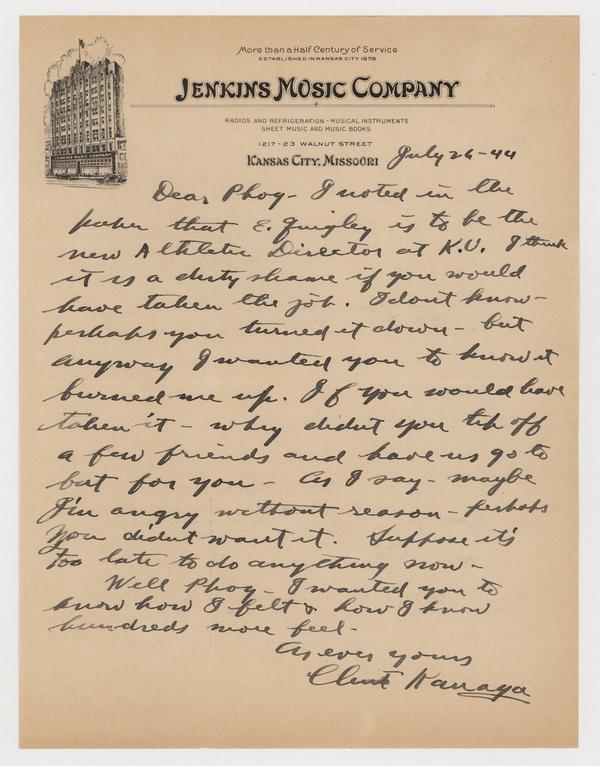 More than a Half Century of Service
ESTABLISHED IN KANSAS CITY 1878
JENKINS MUSIC COMPANY
RADIOS AND REFRIGERATION - MUSICAL INSTRUMENTS
SHEET MUSIC AND MUSIC BOOKS
1217-23 WALNUT STREET
KANSAS CITY, MISSOURI July 26-44
JENKINS MUSIC COMPANY
Dear Phog - I noted in the
paper that E. Quigley is to be the
new Athletic Director at K.U. I think
it is a dirty shame if you would
have taken the job. I dont know -
perhaps you turned it down - but
anyway I wanted you to know it
burned me up. If you would have
taken it - why didnt you tip off
a few friends and have us go to
bat for you - As I say - maybe
I'm angry without reason - perhaps
you didnt want it. Suppose it's
too late to do anything now -
Well Phog - I wanted you to
know how I felt & how I know
hundreds more feel -
As ever yours
Clint Kanaga